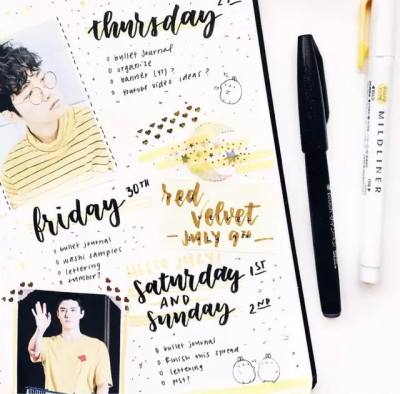 thursday
bullet journal
organize
banner (yt)?
youtube video ideas?
friday 30TH
bullet journal
washi samples
lettering
tumblr?
red
velvet
-JULY 9TH-
HELLO JULY!
saturday 1ST
AND
sunday 2ND
bullet journal
finish this spread
lettering
post?
MILDLINER